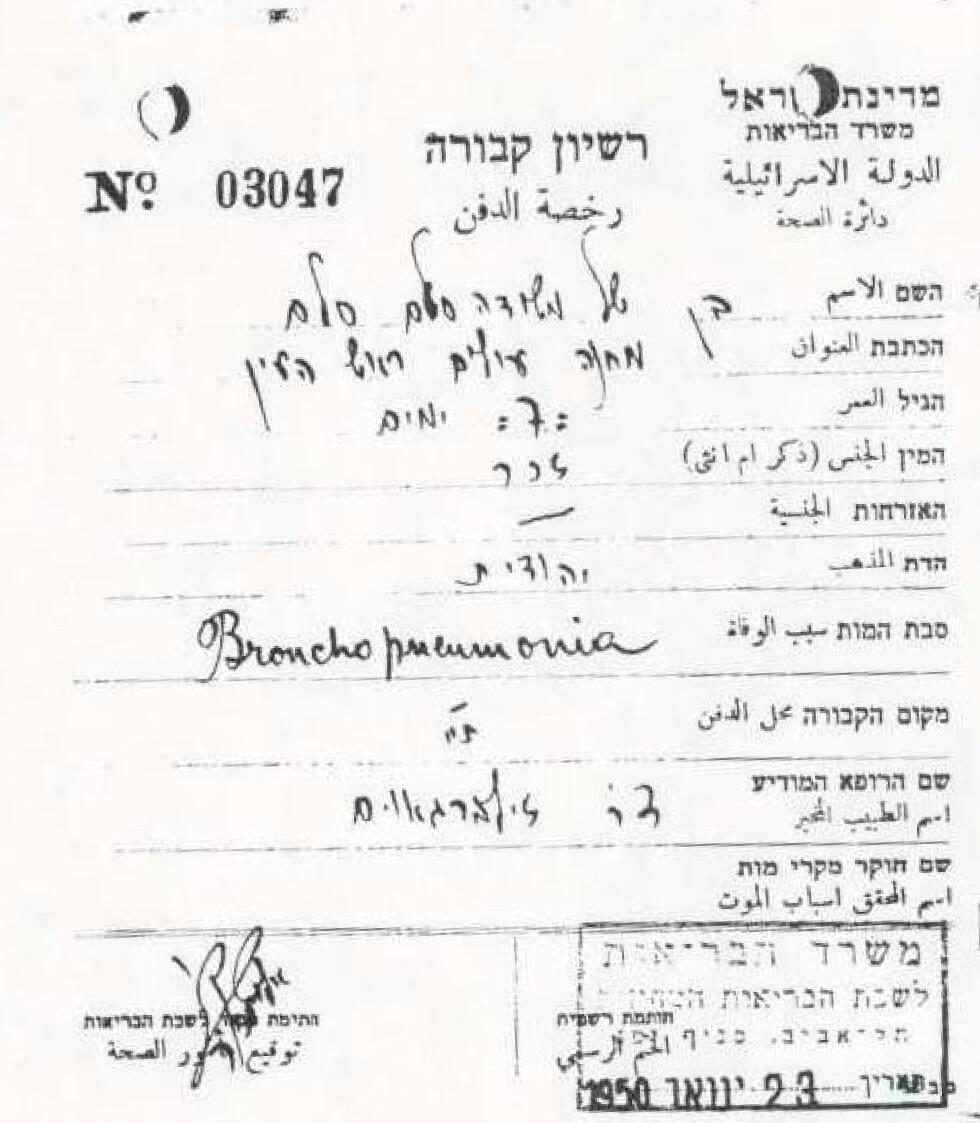 מדינת ישראל
משרד הבריאות
الدولة الاسرائيلية
دائرة الصحة
רשיון קבורה
رخصة الدفن
Nº 03047
השם الاسم בן של סלם
הכתבת العنوان מחנה עולים ראש העין
הגיל العمر 7 ימים
המין الجنس (ذكر ام انثى) זכר
האזרחות الجنسية —
הדת المذهب יהודית
סבת המות سبب الوفاة Bronchopneumonia
מקום הקבורה محل الدفن
שם הרופא המודיע
اسم الطبيب المخبر ד"ר
שם חוקר מקרי מות
اسم المحقق اسباب الموت
משרד הבריאות
לשכת הבריאות
תל-אביב. סניף
חותמת רשמית
الختم الرسمي
תאריך 23 ינואר 1950
חתימת לשכת הבריאות
توقيع الصحة